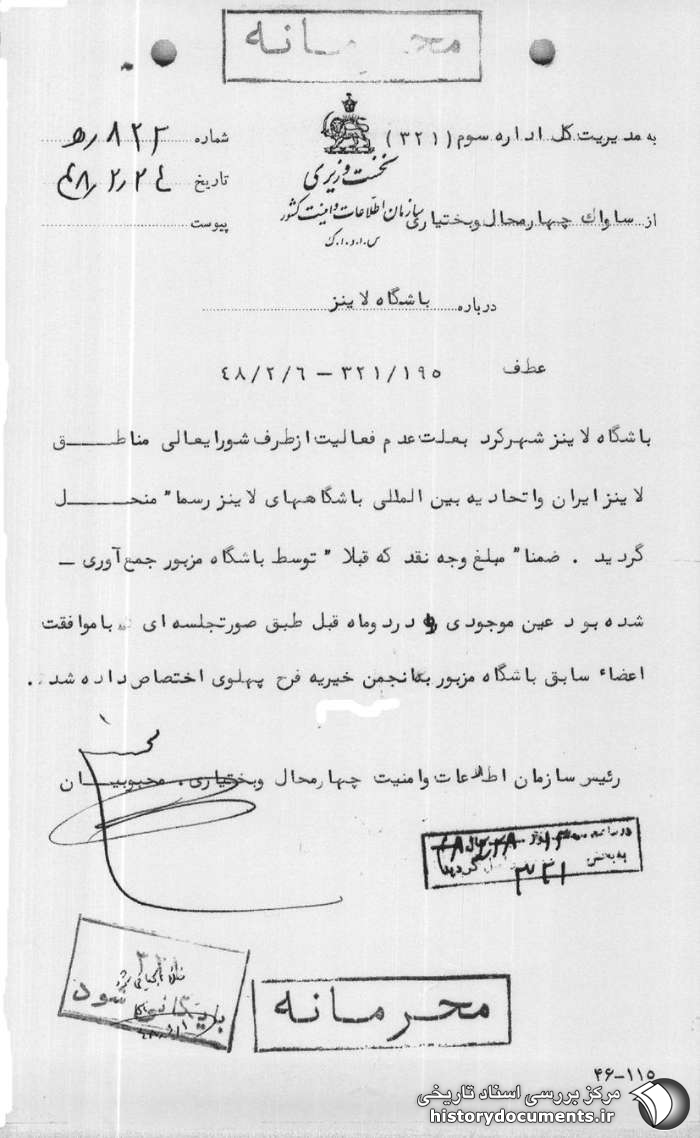 محرمانه
به مدیریت کل اداره سوم (۳۲۱)
نخست وزیری
سازمان اطلاعات و امنیت کشور
س.ا.و.ا.ک
از ساواک چهارمحال و بختیاری
شماره ۸۲۲/ه
تاریخ ۴۸/۲/۲۴
پیوست
درباره باشگاه لاینز
عطف ۳۲۱/۱۹۵ – ۴۸/۲/۶
باشگاه لاینز شهرکرد بعلت عدم فعالیت از طرف شورایعالی مناطق
لاینز ایران و اتحادیه بین المللی باشگاههای لاینز رسما" منحل
گردید . ضمنا" مبلغ وجه نقد که قبلا" توسط باشگاه مزبور جمع آوری –
شده بود عین موجودی در دو ماه قبل طبق صورتجلسه ای با موافقت
اعضاء سابق باشگاه مزبور به انجمن خیریه فرح پهلوی اختصاص داده شد .
رئیس سازمان اطلاعات و امنیت چهارمحال و بختیاری . محبوبیان
به بخش ۳۲۱
گردید
بایگانی شود
محرمانه
۴۶-۱۱۵
مرکز بررسی اسناد تاریخی
historydocuments.ir